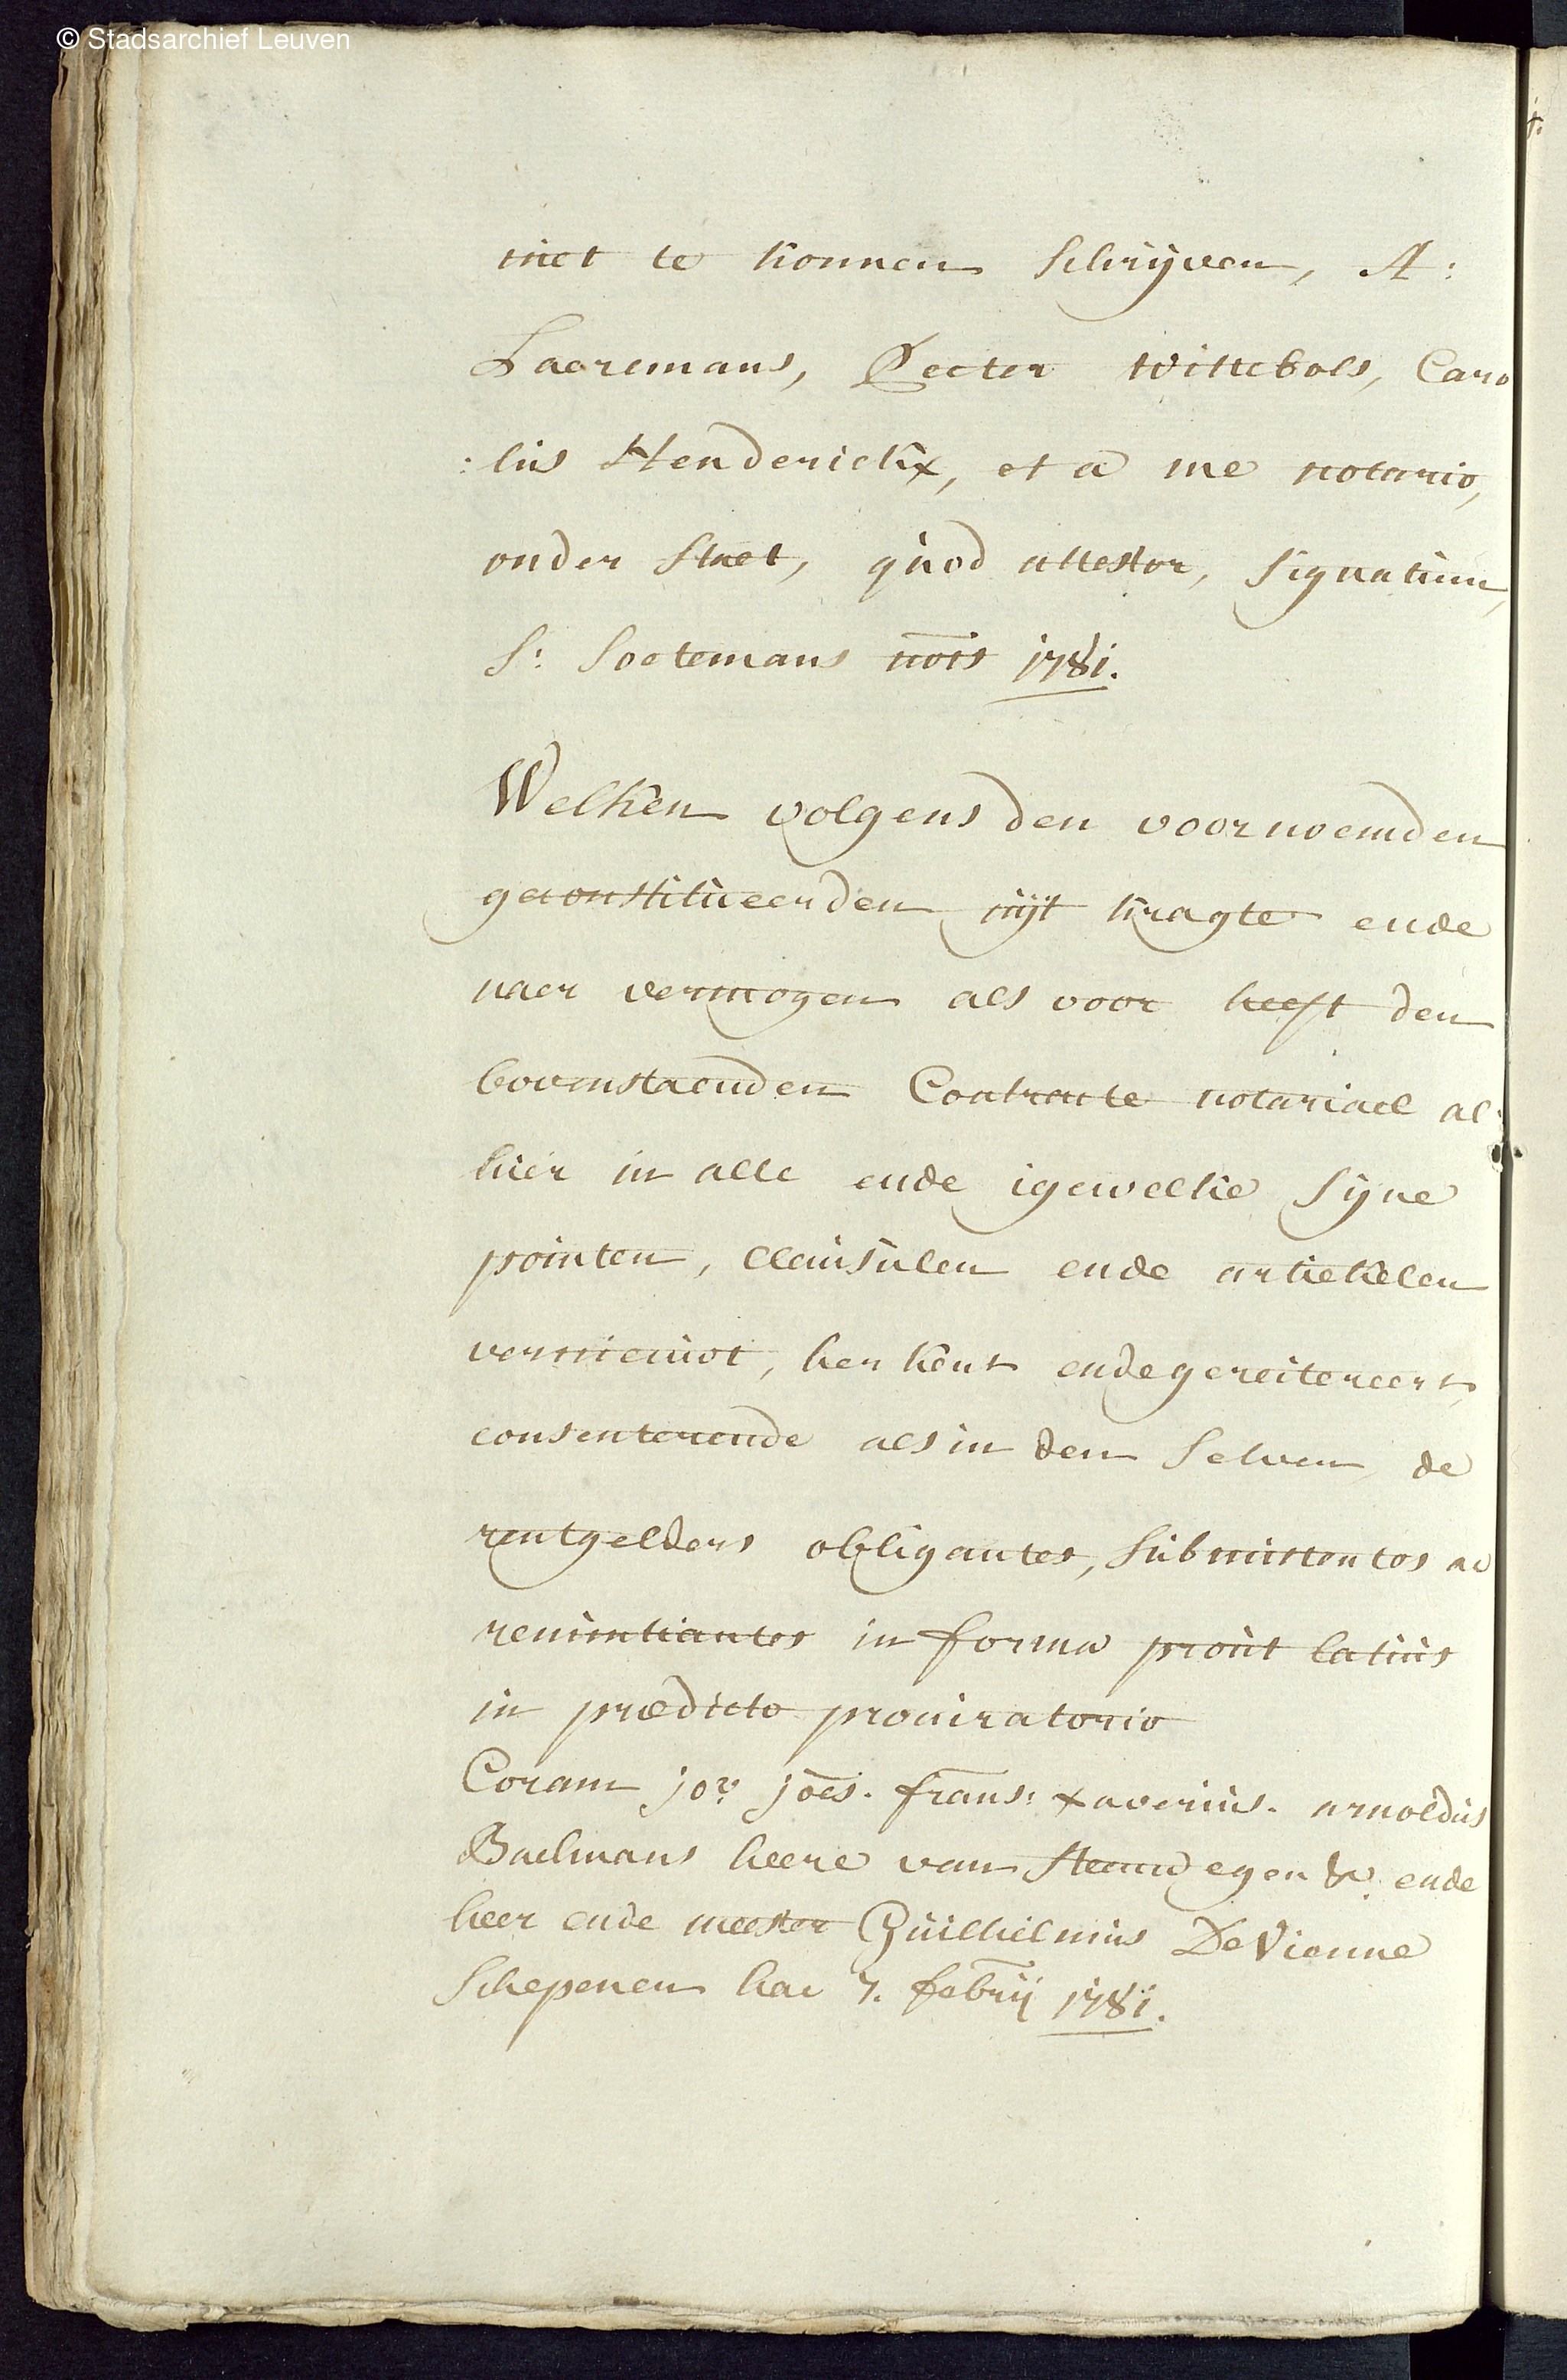 © Stadsarchief Leuven
niet te konnen schrijven, A:
Laeremans, Peeter Wittebols, Caro
:lus Henderickx, et a me notario,
onder staet, quod attestor, signatum,
S: Soetemans nots 1781.
Welken volgens den voornoemden
geconstitueerden uijt kragte ende
naer vermogen als voor heeft den
bovenstaenden Contracte notariael al:
hier in alle ende igewelke sijne
pointen, clausulen ende artiekelen
vernieuwt, herkent ende gereitereert,
consenterende als in den selven de
rentgelders obligantes, submittentes ac
renuntiantes in forma prout latius
in prædicto procuratorio
Coram jor joes. frans: xaverius. arnoldus
Baelmans heere van Steenwegen &c. ende
heer ende meester Guilhelmus De Vienne
Schepenen hac 7. febrij 1781.